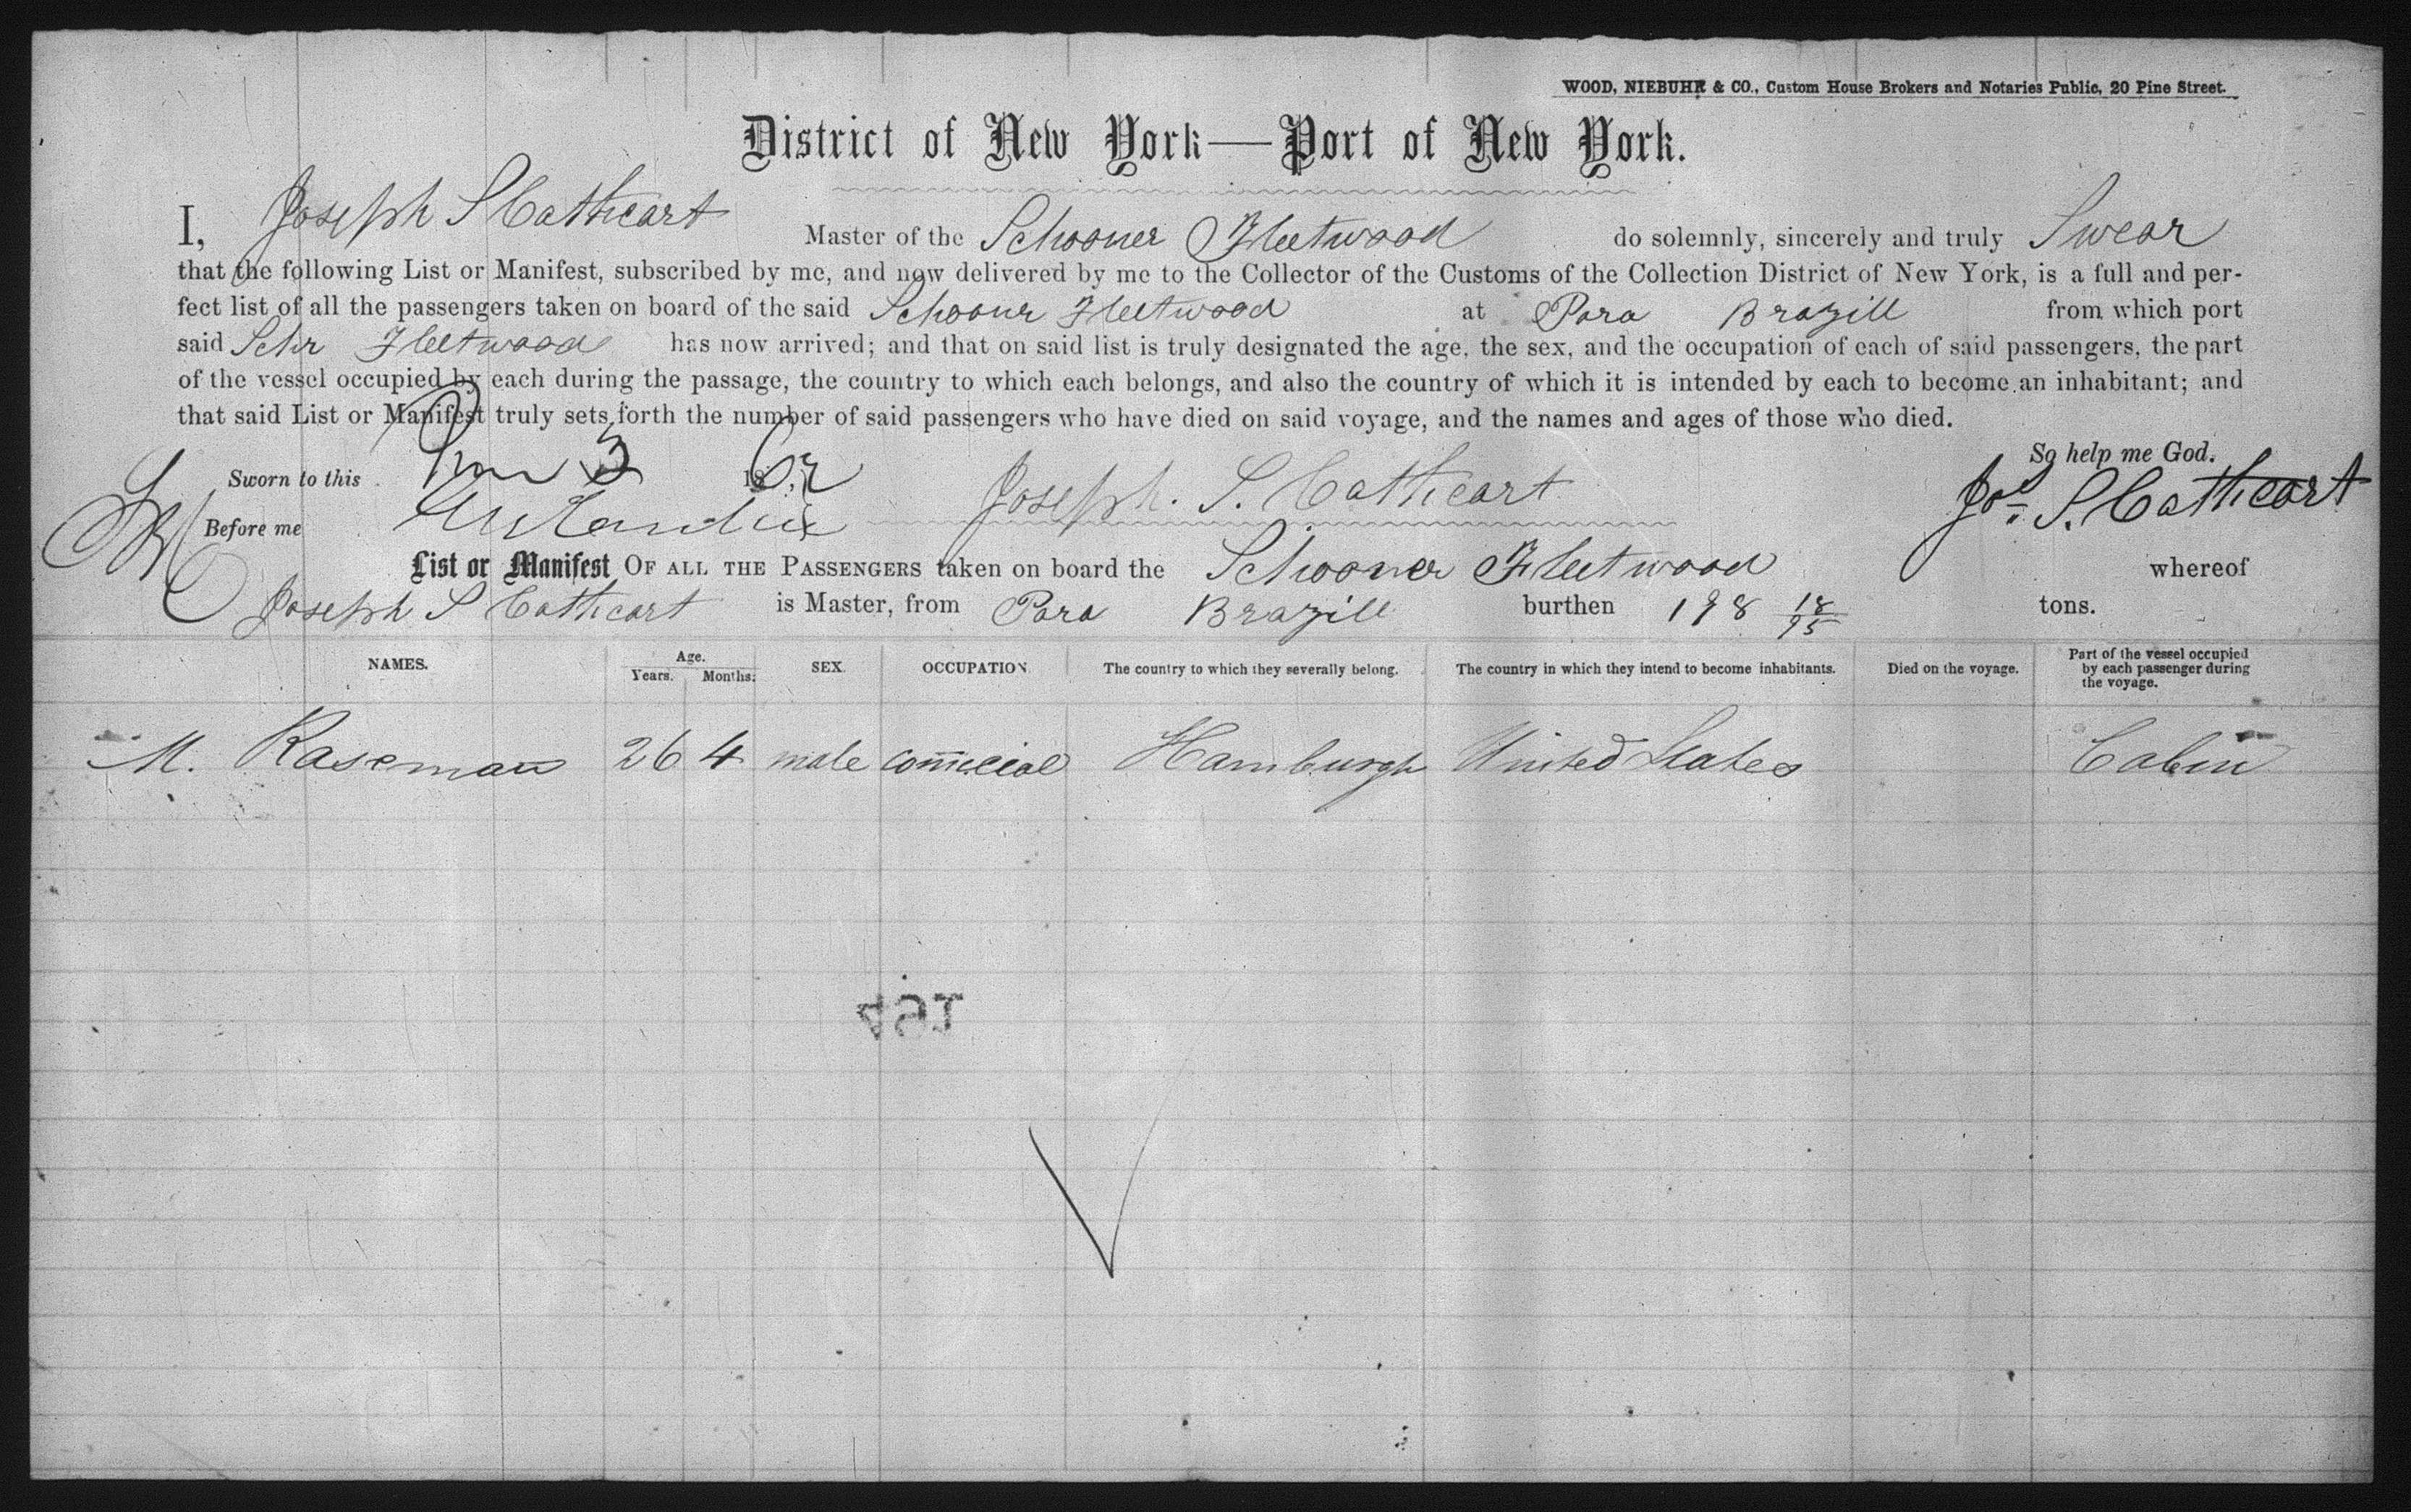 WOOD, NIEBUHR & CO., Custom House Brokers and Notaries Public, 20 Pine Street.
District of New York—Port of New York.
I, Joseph S Cathcart Master of the Schooner Fleetwood do solemnly, sincerely and truly Swear
that the following List or Manifest, subscribed by me, and now delivered by me to the Collector of the Customs of the Collection District of New York, is a full and per-
fect list of all the passengers taken on board of the said Schooner Fleetwood at Para Brazill from which port
said Schr Fleetwood has now arrived; and that on said list is truly designated the age, the sex, and the occupation of each of said passengers, the part
of the vessel occupied by each during the passage, the country to which each belongs, and also the country of which it is intended by each to become an inhabitant; and
that said List or Manifest truly sets forth the number of said passengers who have died on said voyage, and the names and ages of those who died.
So help me God.
Sworn to this 3 1862 Joseph. S. Cathcart Jos. S. Cathcart
Before me
List or Manifest OF ALL THE PASSENGERS taken on board the Schooner Fleetwood whereof
Joseph S Cathcart is Master, from Para Brazill burthen 198 18/95 tons.
NAMES. Age. Years. Months. SEX. OCCUPATION. The country to which they severally belong. The country in which they intend to become inhabitants. Died on the voyage. Part of the vessel occupied by each passenger during the voyage.
M. Raseman 26 4 male Hamburgh United States Cabin
491